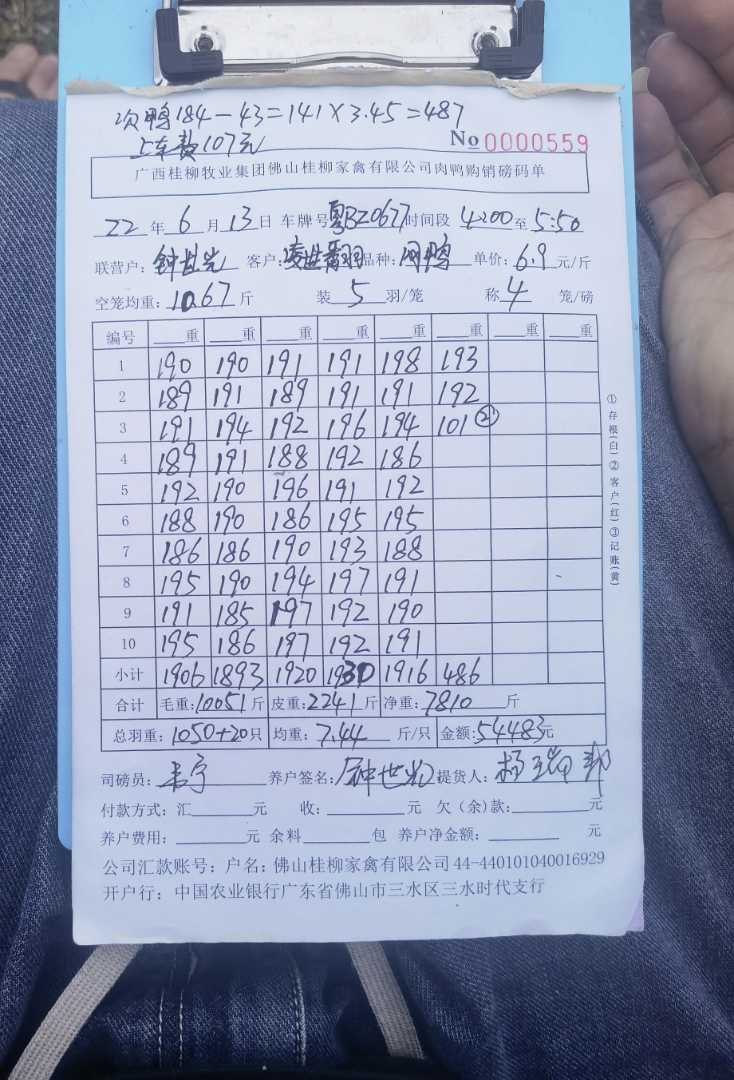 次鸭184-43=141×3.45=487
上车费107元
No 0000559
广西桂柳牧业集团佛山桂柳家禽有限公司肉鸭购销磅码单
22年6月13日 车牌号粤BZ0677时间段4:00至5:50
联营户: 钟世光 客户: 品种: 肉鸭 单价: 6.9元/斤
空笼均重: 10.67斤 装5羽/笼 称4笼/磅
编号 重 重 重 重 重 重 重 重
1 190 190 191 191 198 193
2 189 191 189 191 191 192
3 191 194 192 196 194 101 ②
4 189 191 188 192 186
5 192 190 196 191 192
6 188 190 186 195 195
7 186 186 190 193 188
8 195 190 194 197 191
9 191 185 197 192 190
10 195 186 197 192 191
小计 1906 1893 1920 1930 1916 486
合计 毛重: 10051斤 皮重: 2241斤 净重: 7810斤
总羽重: 1050+20只 均重: 7.44斤/只 金额: 54483元
司磅员: 养户签名: 钟世光 提货人:
付款方式: 汇 元 收: 元 欠(余)款: 元
养户费用: 元 余料 包 养户净金额: 元
公司汇款账号: 户名: 佛山桂柳家禽有限公司44-440101040016929
开户行: 中国农业银行广东省佛山市三水区三水时代支行
①存根(白)②客户(红)③记账(黄)